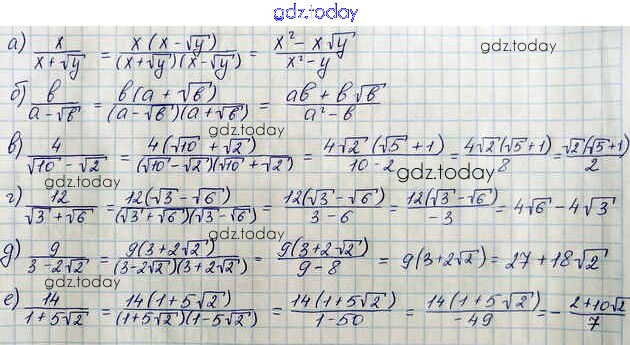 gdz.today
а) x/(x+√y) = x(x-√y)/((x+√y)(x-√y)) = (x²-x√y)/(x²-y) gdz.today
б) в/(a-√в) = в(a+√в)/((a-√в)(a+√в)) = (aв+в√в)/(a²-в)
gdz.today
в) 4/(√10-√2) = 4(√10+√2)/((√10-√2)(√10+√2)) = 4√2(√5+1)/(10-2) = 4√2(√5+1)/8 = √2(√5+1)/2
gdz.today
г) 12/(√3+√6) = 12(√3-√6)/((√3+√6)(√3-√6)) = 12(√3-√6)/(3-6) = 12(√3-√6)/(-3) = 4√6-4√3
gdz.today
д) 9/(3-2√2) = 9(3+2√2)/((3-2√2)(3+2√2)) = 9(3+2√2)/(9-8) = 9(3+2√2) = 27+18√2
gdz.today
е) 14/(1+5√2) = 14(1+5√2)/((1+5√2)(1-5√2)) = 14(1+5√2)/(1-50) = 14(1+5√2)/(-49) = -(2+10√2)/7